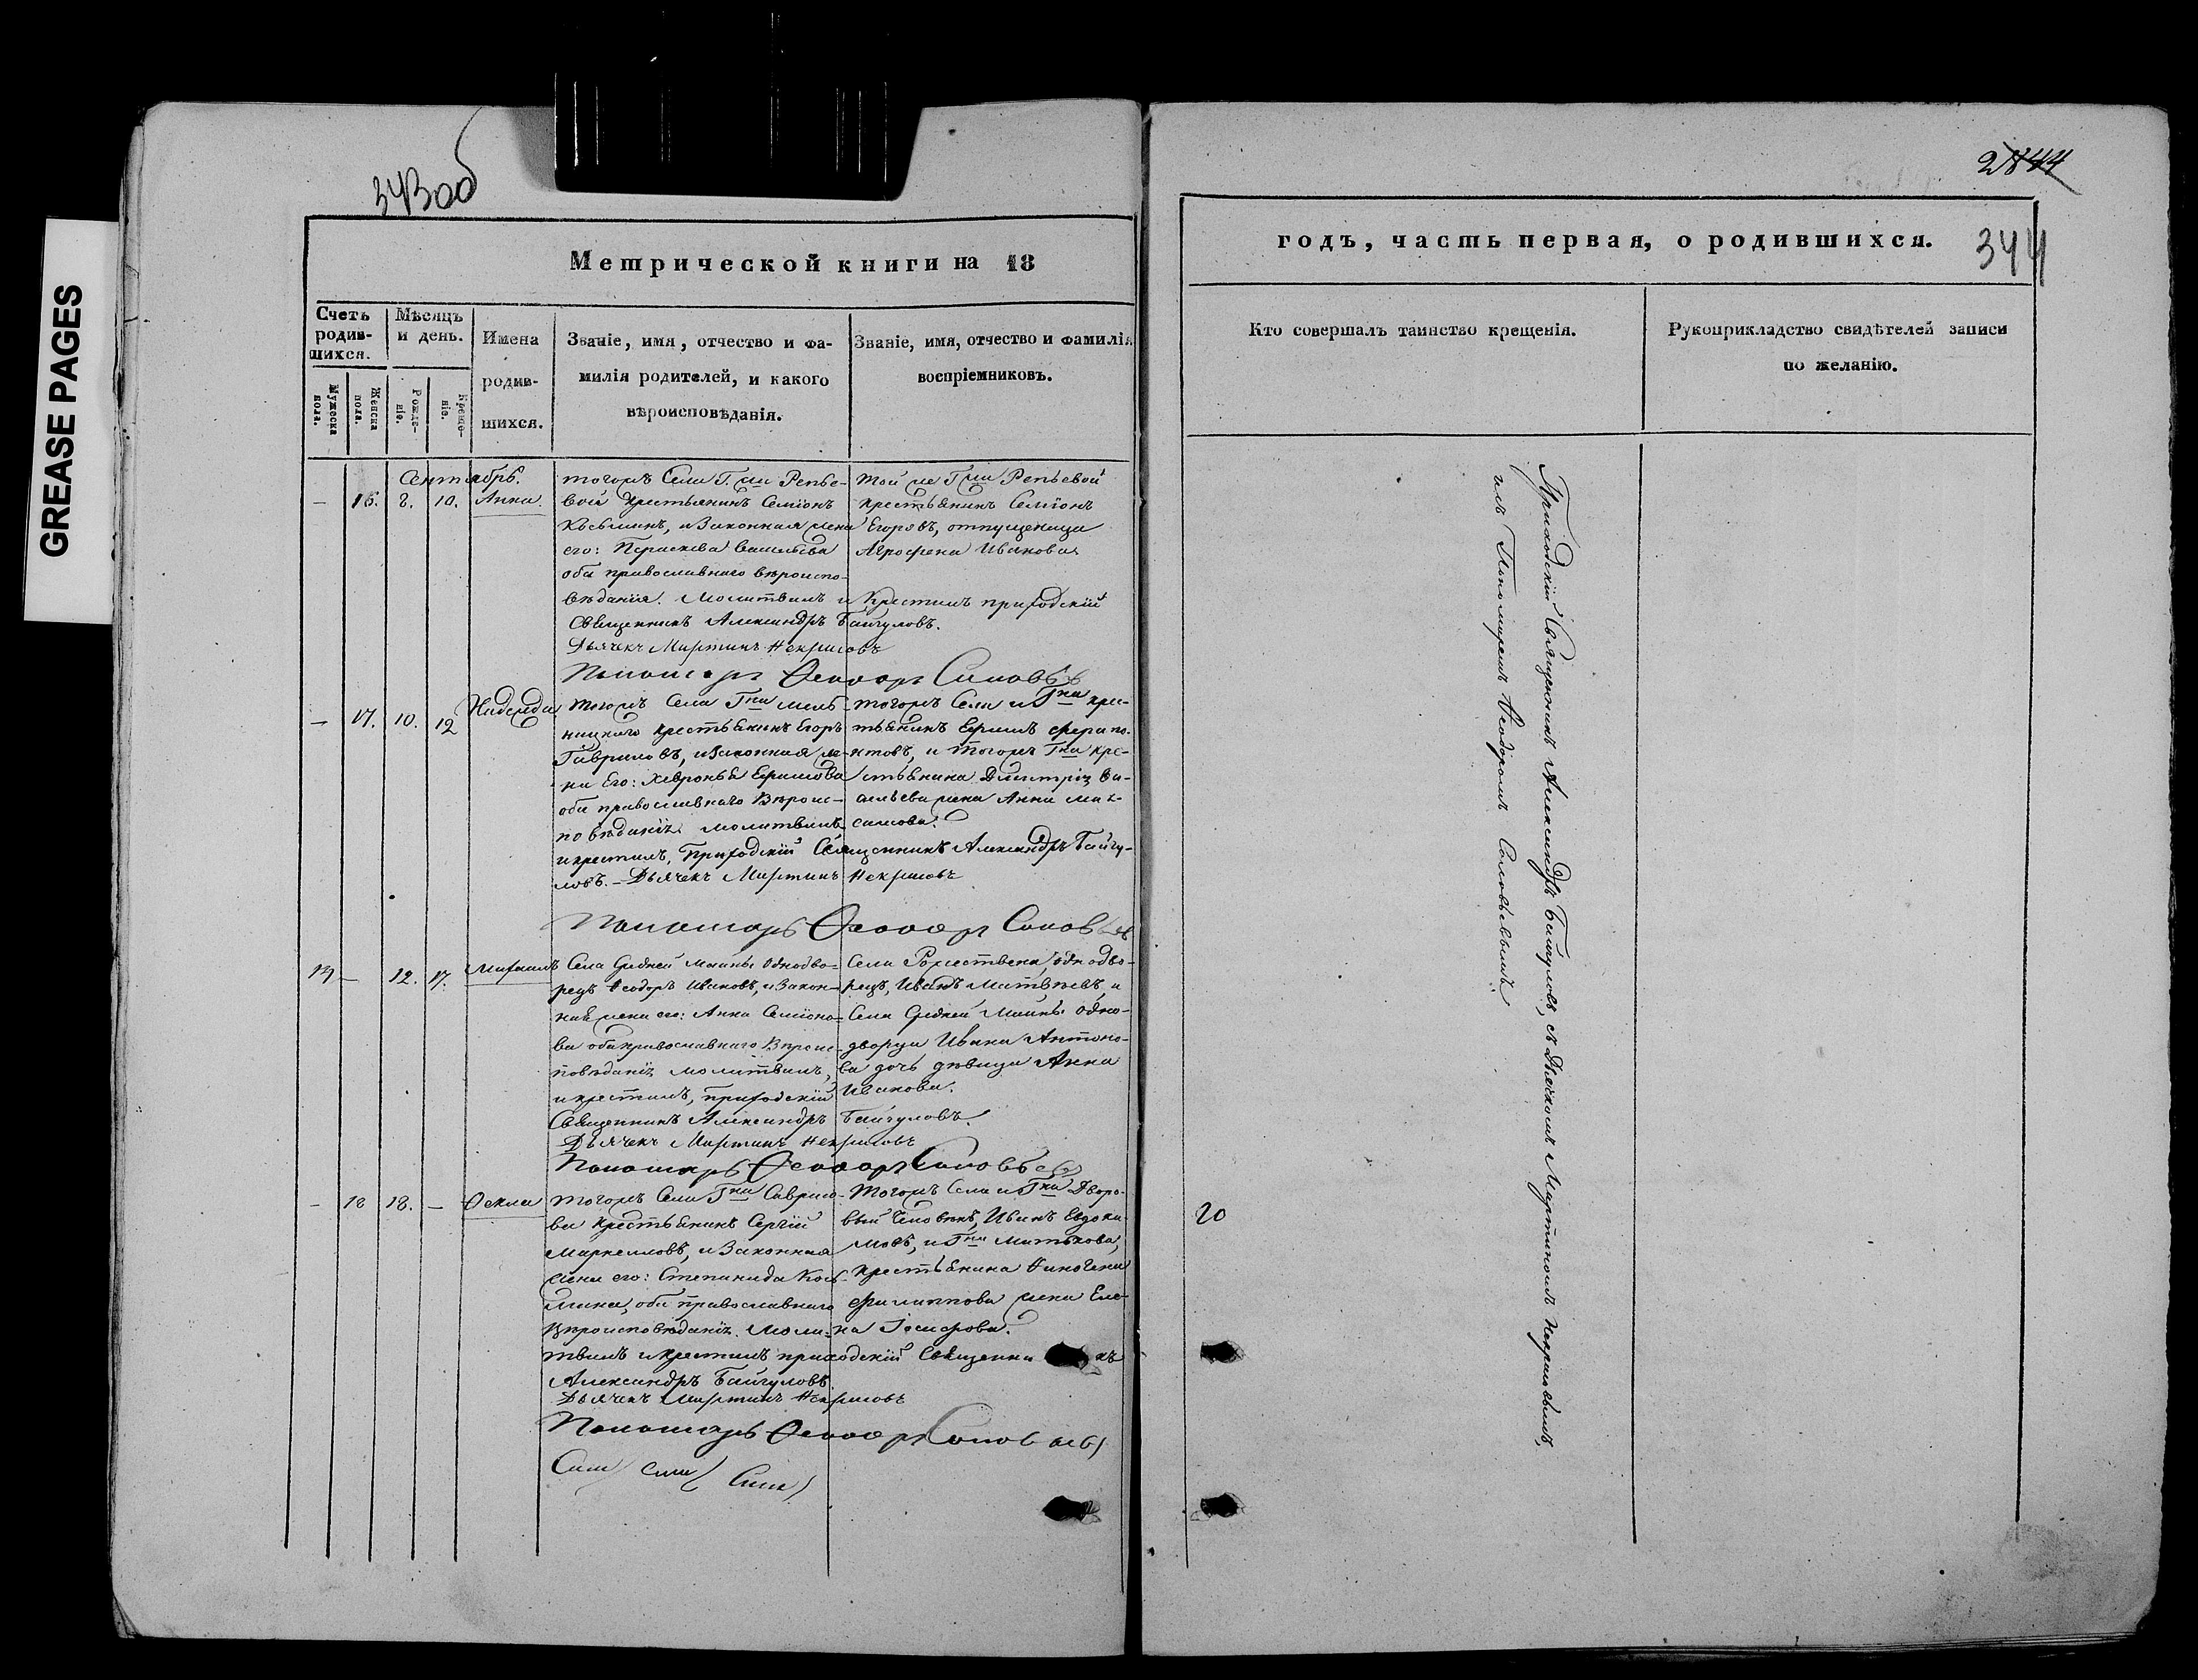 GREASE PAGES
343об
Метрической книги на 18
Счетъ родив-шихся.
Мѣсяцъ и день.
Мужеска пола.
Женска пола.
Рожде-ніе.
Креще-ніе.
Имена
родив-
шихся.
Званіе, имя, отчество и фа-
милія родителей, и какого
вѣроисповѣданія.
Званіе, имя, отчество и фамилія
воспріемниковъ.
Сентябрь.
— 16. 8. 10. Анна.
тогожъ Села Г.жи Репье-
вой крестьянинъ Семіонъ
Козьминъ, и законная жена
его: Параскева Васильева
оба православнаго вѣроиспо-
вѣданія. Молитвилъ и крестилъ приходскій
Священникъ Александръ Байгуловъ.
Дьячекъ Мартинъ Некрасовъ
Пономарь Ѳеодоръ Соловьевъ
Той же Г.жи Репьевой
крестьянинъ Семіонъ
Егоровъ, отпущеница
Агрофена Иванова
— 17. 10. 12 Надежда
тогожъ Села Г.на Мель-
ницкаго крестьянинъ Егоръ
Гавриловъ, и законная же-
на его: Хевронья Ефимова
оба православнаго вѣроис-
повѣданія. молитвилъ
и крестилъ, Приходскій Священникъ Александръ Байгу-
ловъ. — Дьячекъ Мартинъ Некрасовъ
Пономарь Ѳеодоръ Соловьевъ
тогожъ Села и Г.на кре-
стьянинъ Ефимъ Ферапо-
нтовъ, и тогожъ Г.на кре-
стьянина Дмитрія Ва-
сильева жена Анна Мак-
симова.
13 — 12. 17. Михаилъ
Села Средней Маины Однодво-
рецъ Ѳеодоръ Ивановъ, и закон-
ная жена его: Анна Семіоно-
ва оба православнаго вѣроис-
повѣданія молитвилъ,
и крестилъ, приходскій
Священникъ Александръ Байгуловъ.
Дьячекъ Мартинъ Некрасовъ
Пономарь Ѳеодоръ Соловьевъ
Села Рожествена, однодво-
рецъ, Иванъ Матвѣевъ, и
Села Средней Маины одно-
дворца Ивана Антоно-
ва дочь дѣвица Анна
Иванова.
— 18 18. — Ѳекла
тогожъ Села Г.на Гаврило-
ва крестьянинъ Сергій
Маркелловъ, и законная
жена его: Степанида Козь-
мина, оба православнаго
вѣроисповѣданія. Моли-
твилъ и крестилъ приходскій Священникъ
Александръ Байгуловъ
Дьячекъ Мартинъ Некрасовъ
Пономарь Ѳеодоръ Соловьевъ
тогожъ Села и Г.на Дворо-
вый человѣкъ, Иванъ Евдоки-
мовъ, и Г.на Митькова,
крестьянина
Филиппова жена Еле-
на Іосифова.
годъ, часть первая, о родившихся.
344
Кто совершалъ таинство крещенія.
Рукоприкладство свидѣтелей записи
по желанію.
Приходскій Священникъ Александръ Байгуловъ, съ Дьячкомъ Мартиномъ Некрасовымъ,
и съ Пономаремъ Ѳеодоромъ Соловьевымъ.
20